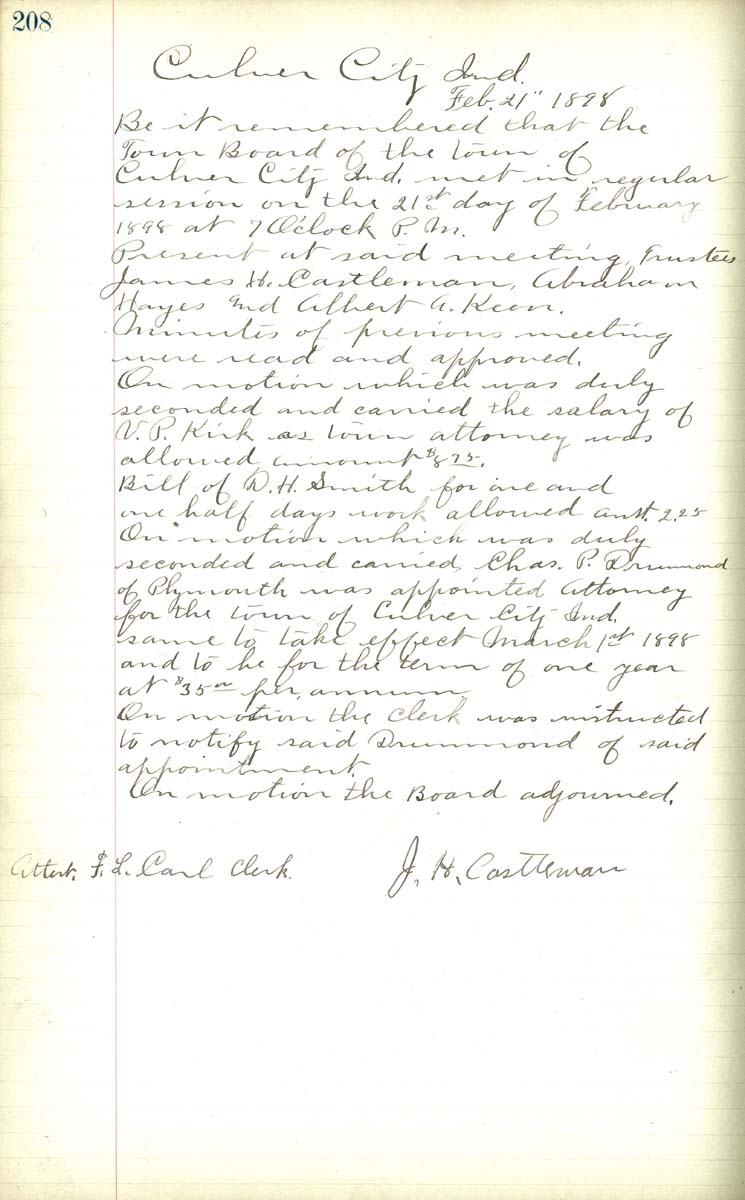 208
Culver City Ind.
Feb. 21" 1898
Be it remembered that the
Town Board of the town of
Culver City Ind. met in regular
session on the 21st day of February
1898 at 7 O'clock P. M.
Present at said meeting, Trustees
James H. Castleman, Abraham
Hayes and Albert A. Keen.
Minutes of previous meeting
were read and approved.
On motion which was duly
seconded and carried the salary of
V. P. Kirk as town attorney was
allowed, amount $8.75.
Bill of D. H. Smith for one and
one half days work allowed amt. 2.25
On motion which was duly
seconded and carried, Chas. P. Drummond
of Plymouth was appointed Attorney
for the town of Culver City Ind.
same to take effect March 1st 1898
and to be for the term of one year
at $35 00 per annum
On motion the Clerk was instructed
to notify said Drummond of said
appointment.
On motion the Board adjourned.
Attest. F. L. Carl Clerk.
J. H. Castleman